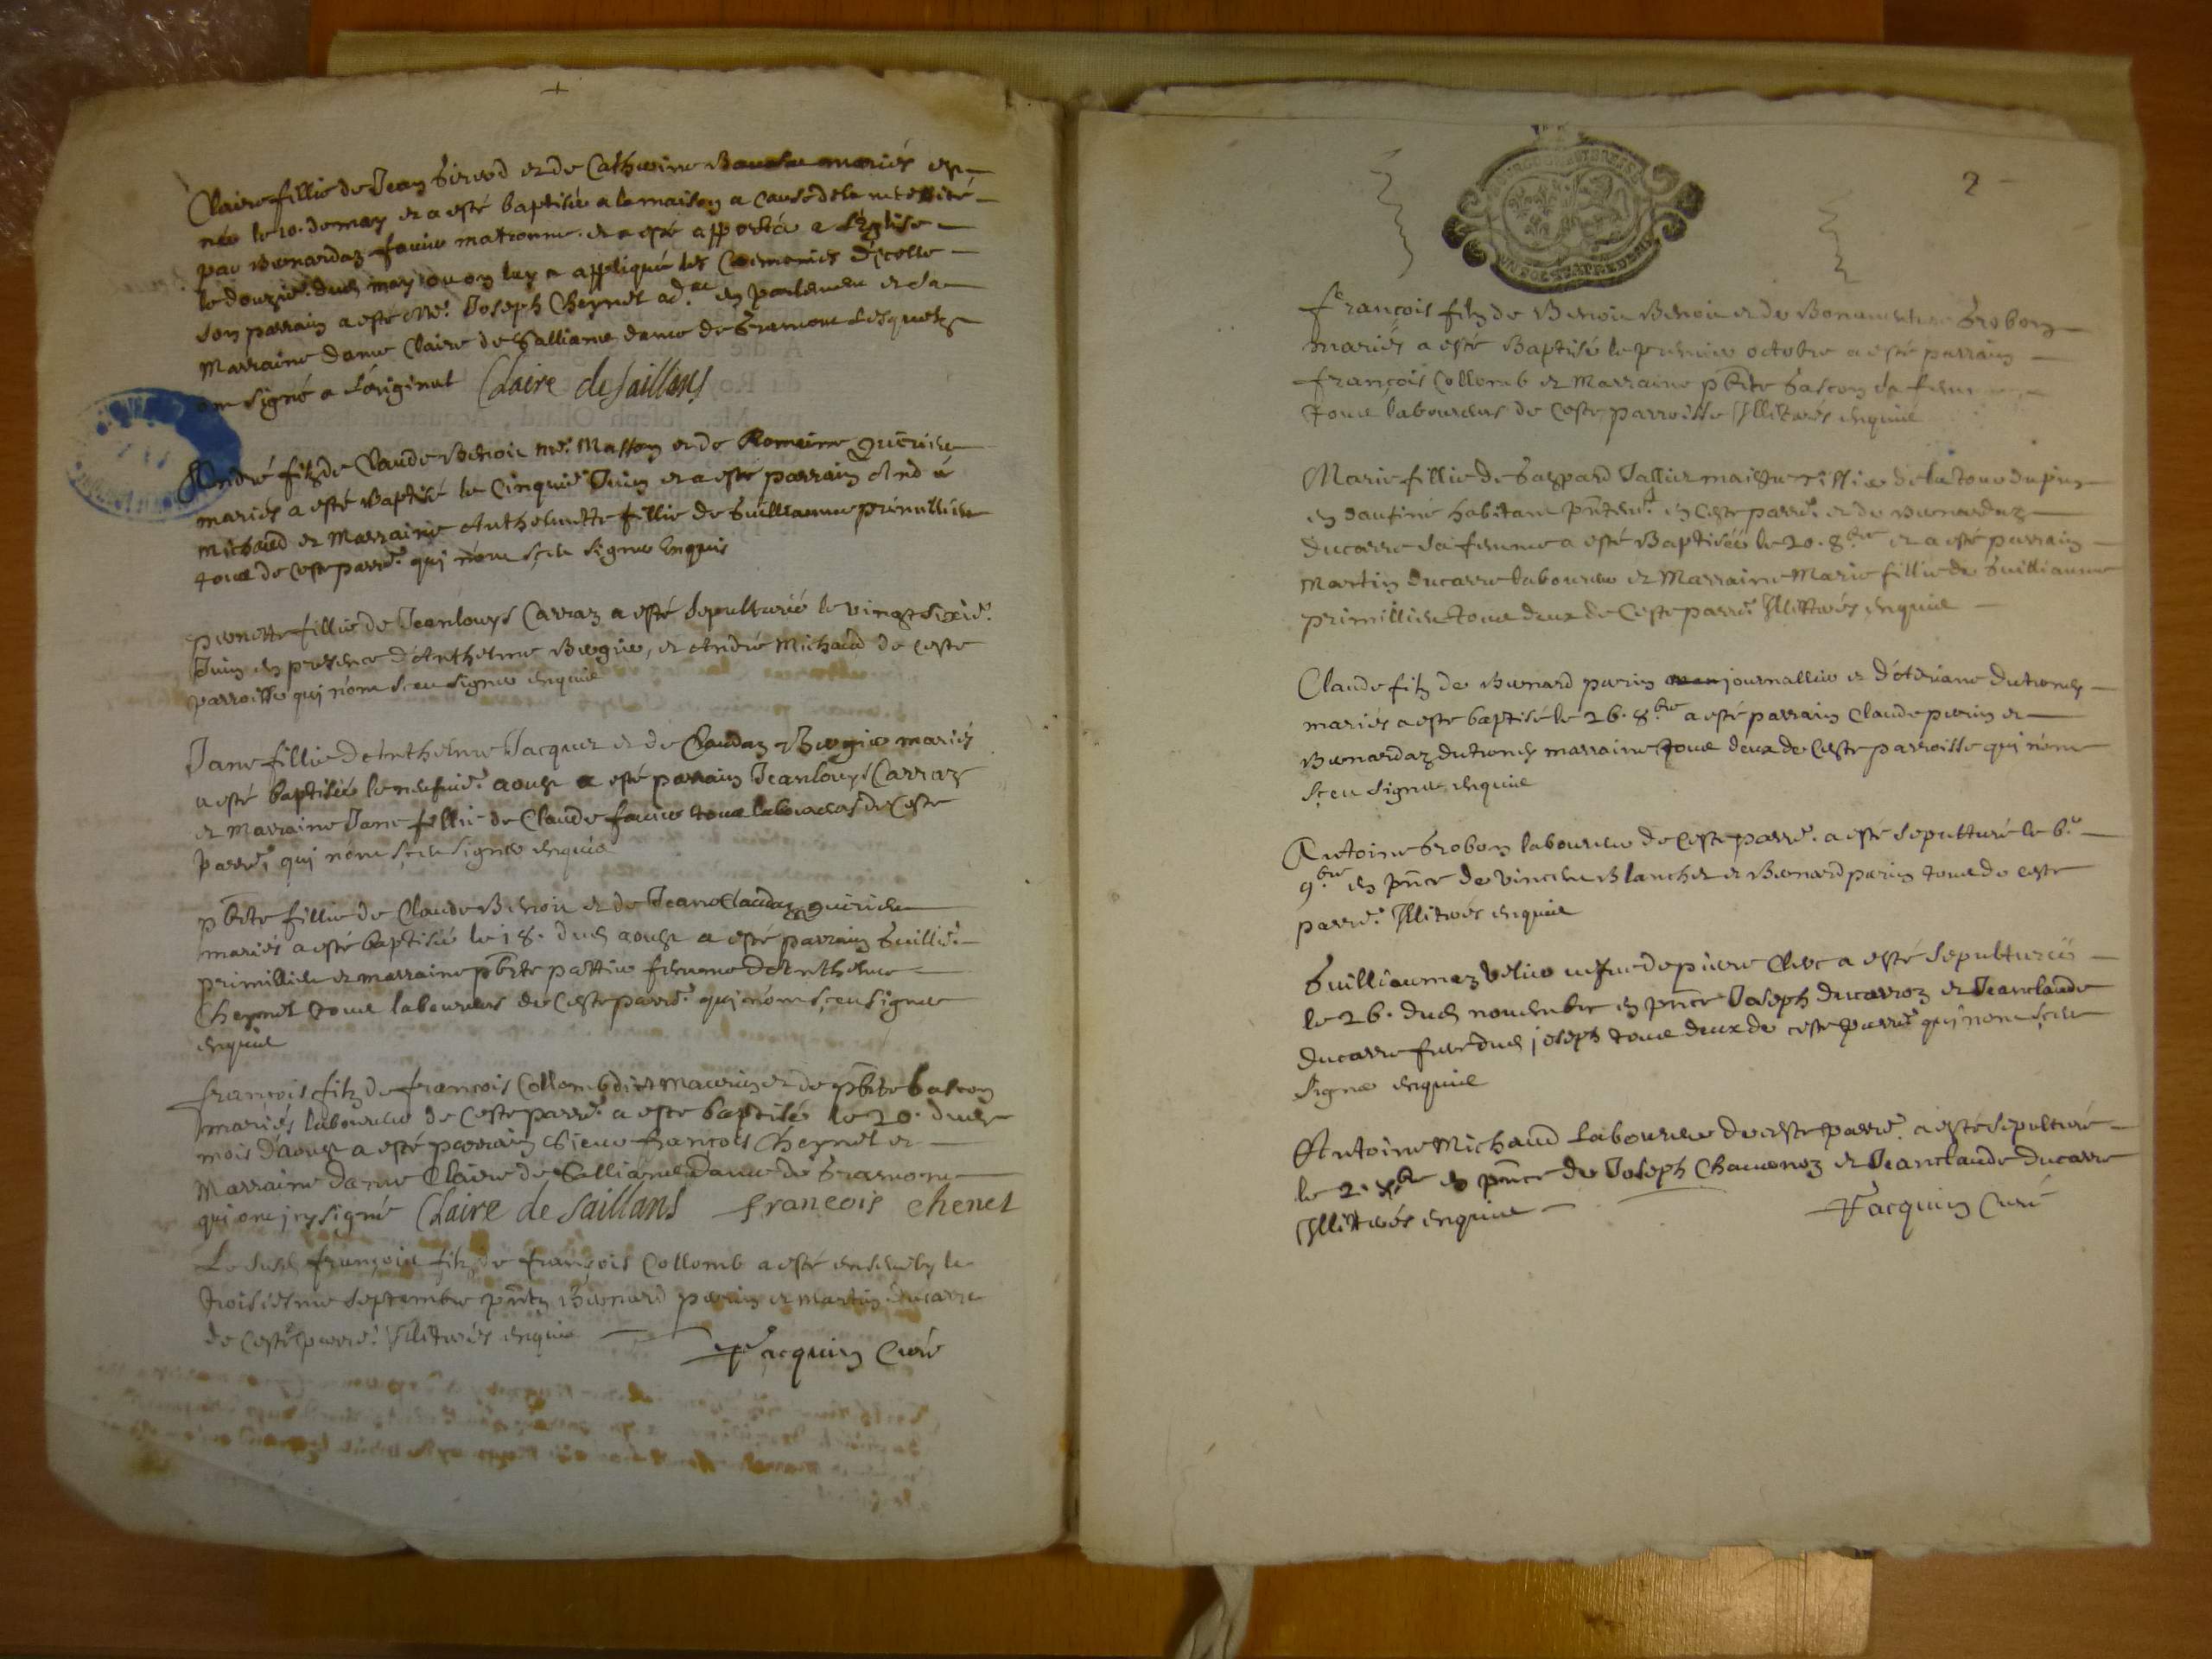 Claire fillie de Jean Girerd et de Catherine mariés est
née le 10. de may et a esté baptisée a la maison a cause de la necessité
par Bernardaz favier matronne et a esté apportée a L'Eglise
le douzie. dud may ou on luy a appliqué les Ceremonies d'jcelle
son parrain a esté Me. Joseph Cheynet ad.at en parlement et sa
Marraine dame Claire de Salliame dame de Gramont Lesquels
ont signé a L'original Claire de Saillans
André filz de Claude Benoit me. Masson et de Romaine
mariés a esté Baptisé le Cinquie. Juin et a esté parrain André
Michaud et Marraine Anthelmette fillie de Guilliaume primillieu
tous de ceste parre. qui n'ont sceu signer Enquis
pernette fillie de Jeanlouys Carraz a esté sepulturée le vingt sixie.
Juin en presence d'Anthelme Bergier, et André Michaud de ceste
parroisse qui n'ont sceu signer enquis
Jane fillie d'Anthelme Jacquet et de Claudaz Bergier mariés
a esté baptisée le neufvie. aoust a esté parrain Jeanlouys Carraz
et Marraine Jane fillie de Claude favier tous laboureurs de Ceste
parre. qui n'ont sceu signer enquis
pbrte fillie de Claude Benoit et de Jeane Claudaz
mariés a esté baptisée le 18. dud aoust a esté parrain Guillie.
primillieu et marraine pbrte pattier femme d'Anthelme
Cheynet tous laboureurs de Ceste parre. qui n'ont sceu signer
enquis
françois filz de françois Collomb dict Maurin et de pbrte bascon
mariés laboureur de Ceste parre. a esté baptisé le 20. dud
mois d'aoust a esté parrain Sieur françois Cheynet et
Marraine dame Claire de Salliame dame de Gramont
qui ont jcy signé Claire de Saillans francois chenet
Le susd françois filz de françois Collomb a esté ensevely le
troisiesme septembre pntz Bernard perrin et Martin ducarre
de Ceste parre. Illiterés enquis
Jacquin Curé
2
françois filz de Benoit Benoit et de Bonaventure Grobon
mariés a esté Baptisé le premier octobre a esté parrain
françois Collomb et Marraine pbrte bascon sa femme
tous laboureurs de Ceste parroisse Illiterés enquis
Marie fillie de Gaspard Tallier maistre tissier de la tour du pin
en Daufiné habitant pntemt. en Ceste parre. et de Bernardaz
ducarre sa femme a esté Baptisée le 20. 8.bre et a esté parrain
Martin ducarre laboureur et Marraine Marie fillie de Guilliaume
primillieu tous deux de Ceste parre. Illitterés enquis
Claude filz de Bernard perrin journallier et d'éteiane dutronch
mariés a esté baptisé le 26. 8.bre a esté parrain Claude perrin et
Bernardaz dutronch marraine tous deux de Ceste parroisse qui n'ont
sceu signer enquis
Antoine Grobon laboureur de Ceste parre. a esté sepulturé le 6.e
9.bre en pnce de vincent Blanchet et Bernard perrin tous de ceste
parre. Illiterés enquis
Guilliaumaz velier vefve de pierre Clerc a esté sepulturée
le 26. dud novembre en pnce Joseph ducarroz et Jeanclaude
ducarre frere dud joseph tous deux de ceste parre. qui n'ont sceu
signer enquis
Antoine Michaud Laboureur de ceste parre. a esté sepulturé
le 2. xbre en pnce de Joseph Chavenoz et Jeanclaude ducarre
Illitterés enquis Jacquin Curé